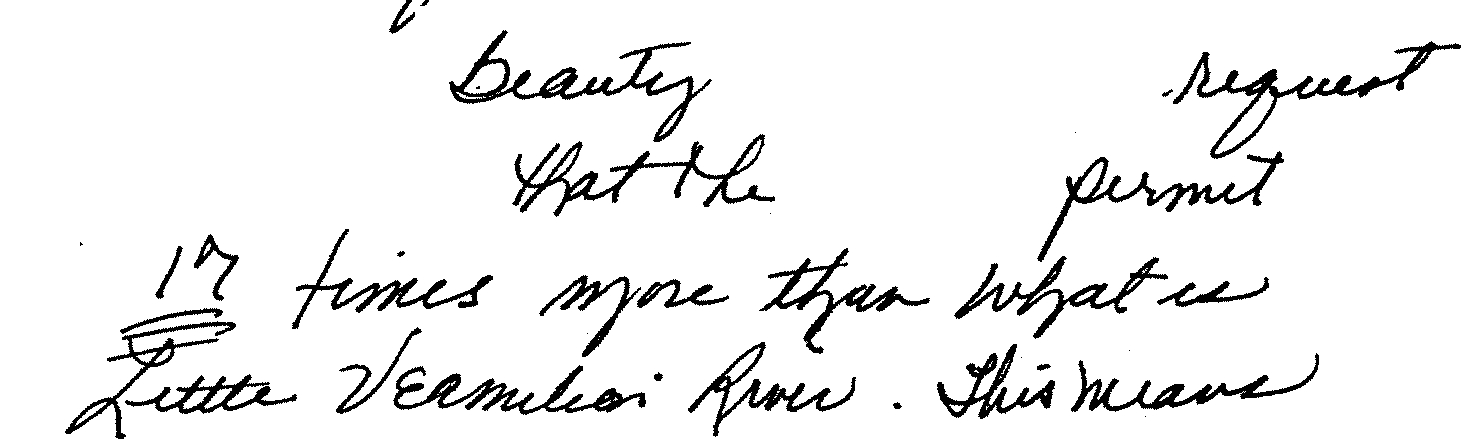 beauty request
that the permit
17 times more than what is
Little Vermilion River. This means